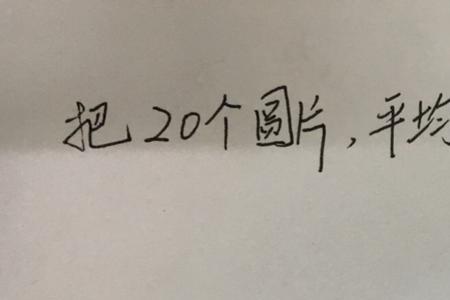 把20个圆片,平均